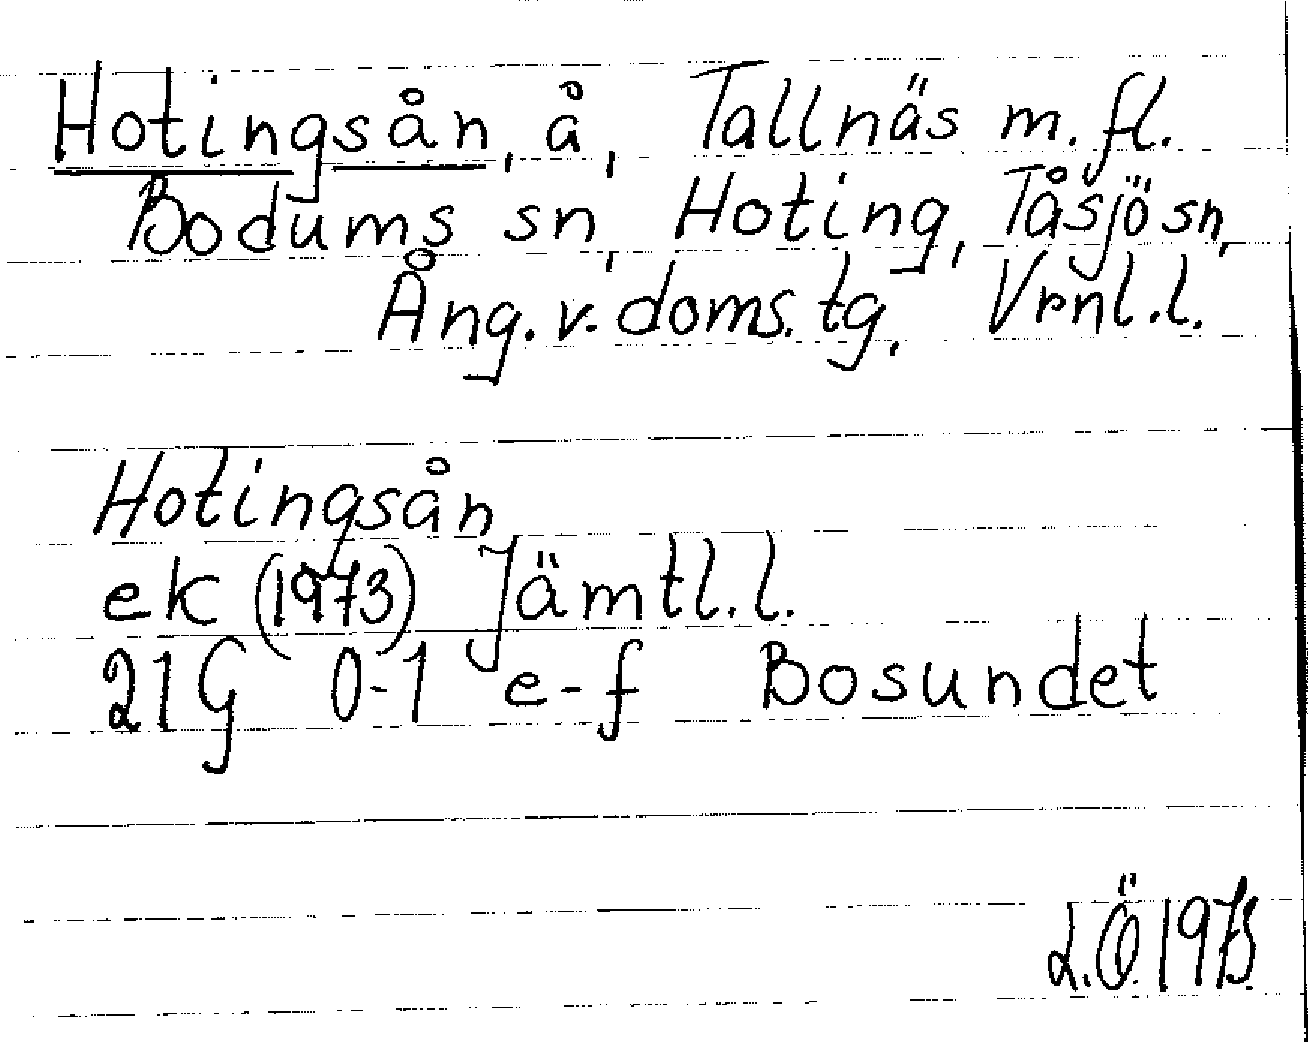 Hotingsån, å, Tallnäs m.fl.
Bodums sn, Hoting, Tåsjö sn,
Ång. v. doms. tg, Vrnl.l.
Hotingsån
ek (1973) Jämtl.l.
21G 0-1 e-f Bosundet
L.Ö. 1975